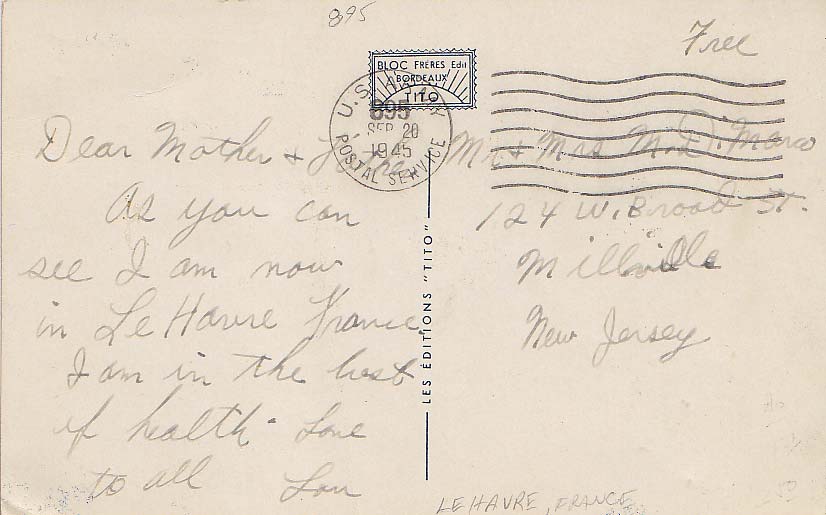 895
Free
BLOC FRÈRES Edit
BORDEAUX
TITO
U.S. ARMY
895
SEP 20
1945
POSTAL SERVICE
Dear Mother &
As you can
see I am now
in Le Havre France
I am in the best
of health - Love
to all Lou
LES ÉDITIONS "TITO"
Mr & Mrs M. DiMarco
124 W. Broad St.
Millville
New Jersey
LE HAVRE, FRANCE